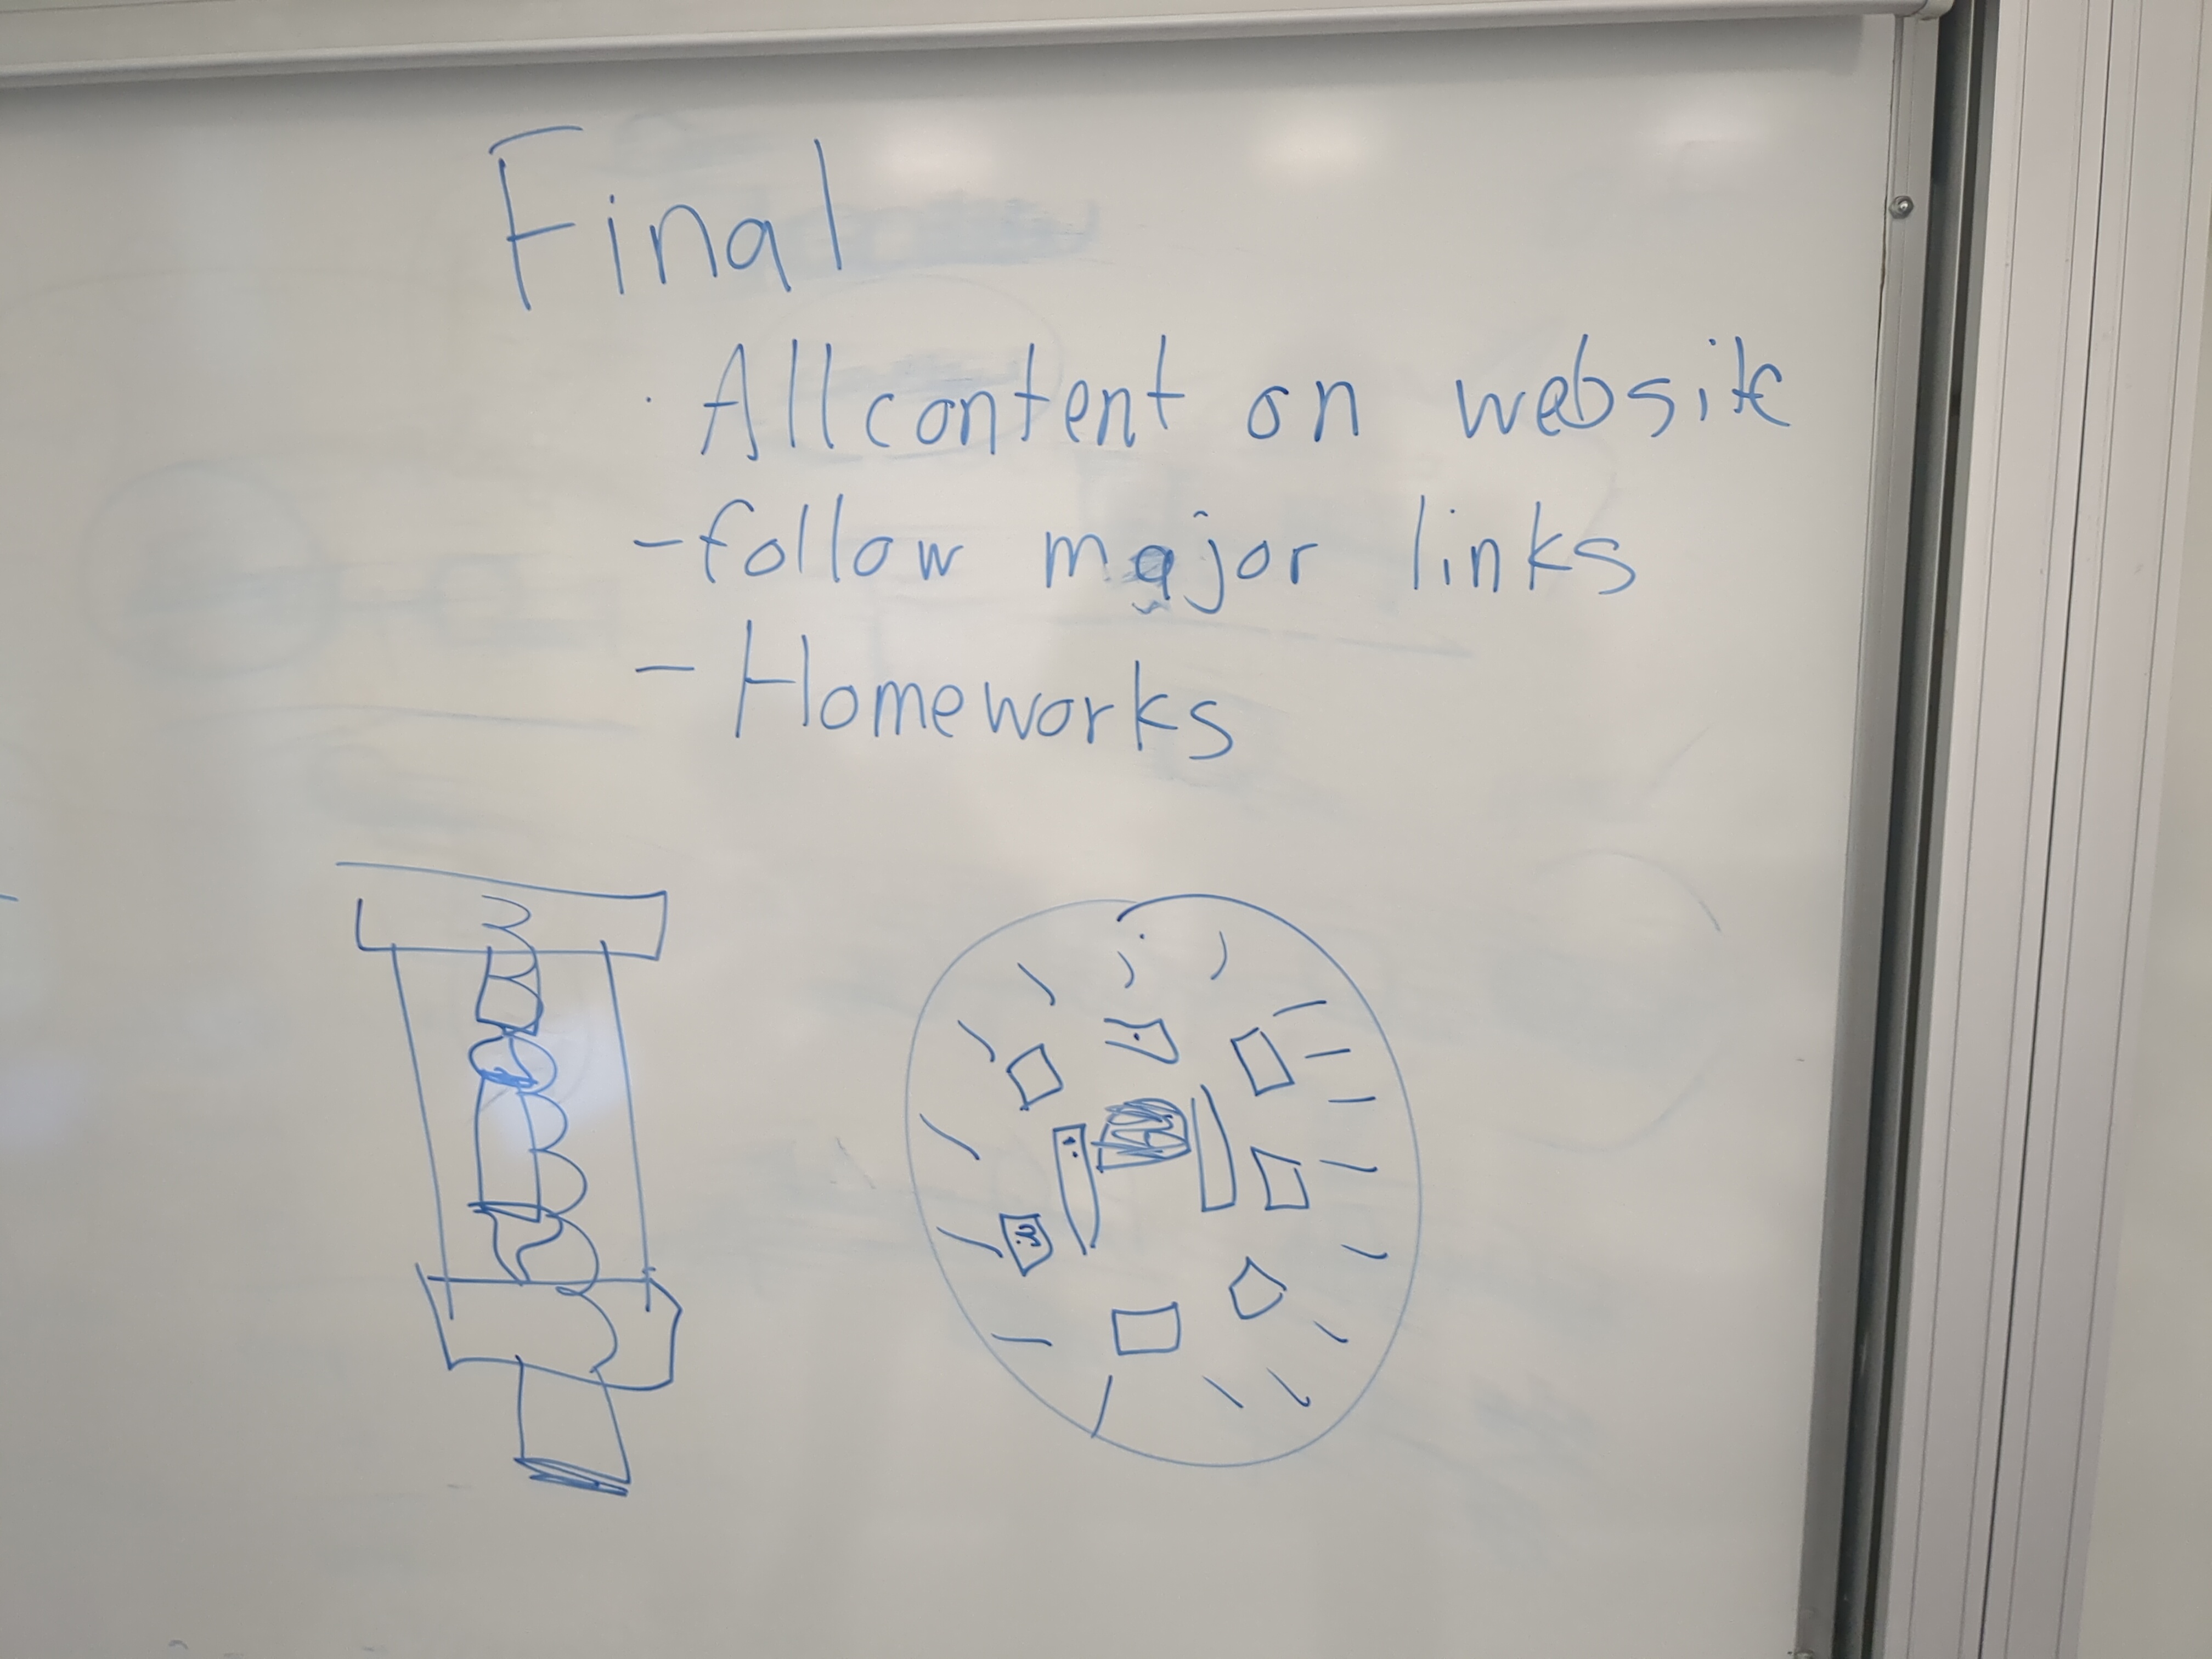 Final
· All content on website
- follow major links
- Homeworks